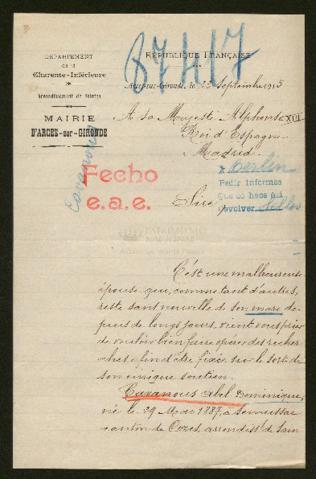 87417
DÉPARTEMENT
DE LA
Charente-Inférieure
Arrondissement de Saintes
MAIRIE
D'ARCES-sur-GIRONDE
RÉPUBLIQUE FRANÇAISE
Arces-sur-Gironde, le septembre 1915
A sa Majesté Alphonse XIII
Roi d'Espagne
Madrid
Berlin
Pedir informes
que se hace
devolver
Fecho
e.a.e.
Sire,
C'est une malheureuse
épouse que, comme tant d'autres,
reste sans nouvelle de son mari de-
puis de longs jours, vient vous prier
de vouloir bien faire opérer des recher-
ches afin d'être fixée sur le sort de
son unique soutien.
Abel Dominique,
né le 29 Mars 1887, à Semussac
canton de Cozes, arrondist de Sain